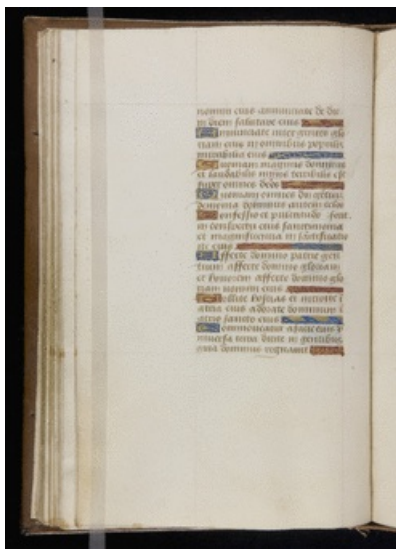 nomini eius annunciate de die
in diem salutare eius
Annunciate inter gentes glo
riam eius in omnibus populis
mirabilia eius
Quoniam magnus dominus
et laudabilis nimis terribilis est
super omnes deos
Quoniam omnes dii gentium
demonia dominus autem celos
Confessio et pulcritudo
in conspectu eius sanctimonia
et magnificentia in sanctificatio
ne eius
Afferte domino patrie genti
um afferte domino gloriam
et honorem afferte domino glo
riam nomini eius
Tollite hostias et introite i
atria eius adorate dominum i
atrio sancto eius
Commoveatur a facie eius v
niversa terra dicite in gentibus
quia dominus regnavit